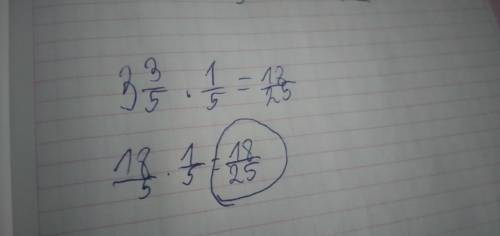 3 3/5 · 1/5 = 18/25
18/5 · 1/5 = 18/25